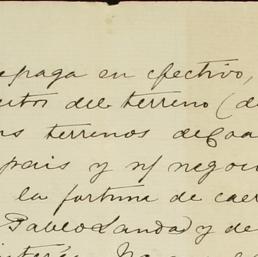 epaga en efectivo,
utos del terreno (d
ns terrenos de Coa
pais y n/ negoci
la fortuna de caer
Pablo Landa y de